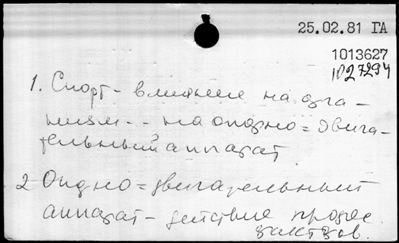 25.02.81 ГА
1013627
1027294
1. Спорт - влияние на орга-
низм - - на опорно = двига-
тельный аппарат
2 Опорно = двигательный
аппарат - действие профес.
факторов.